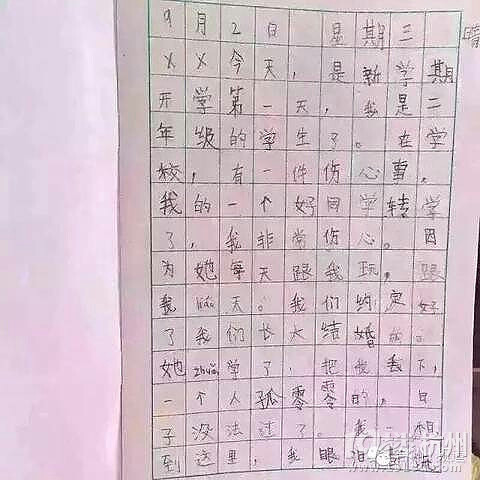 9月2日 星期三 晴
××今天，是新学期
开学第一天，我是二
年级的学生了。在学
校，有一件伤心事，
我的一个好同学转学
了，我非常伤心。因
为她每天跟我玩，跟
我liáo天。我们约定好
了我们长大结婚的。
她zhuǎn学了，把我丢下，
一个人孤零零的，日
子没法过了。我一想
到这里，我眼泪
杭州